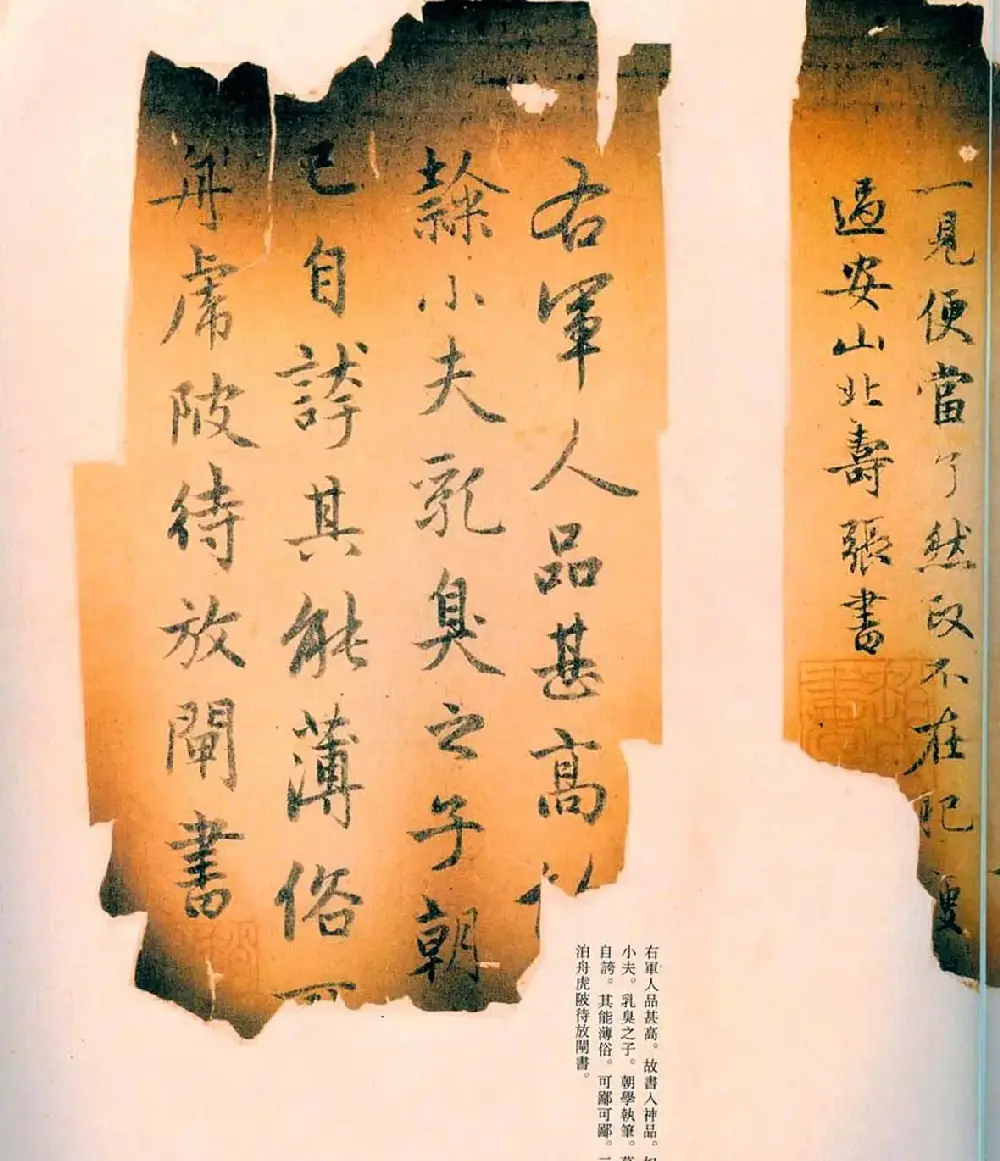 一見便當了然政不在肥
過安山北壽張書
右軍人品甚高
隸小夫乳臭之子朝
已自誇其能薄俗
舟虎陂待放閘書
右軍人品甚高。故書入神品。
小夫。乳臭之子。朝學執筆。
自誇。其能薄俗。可鄙可鄙。
泊舟虎陂待放閘書。